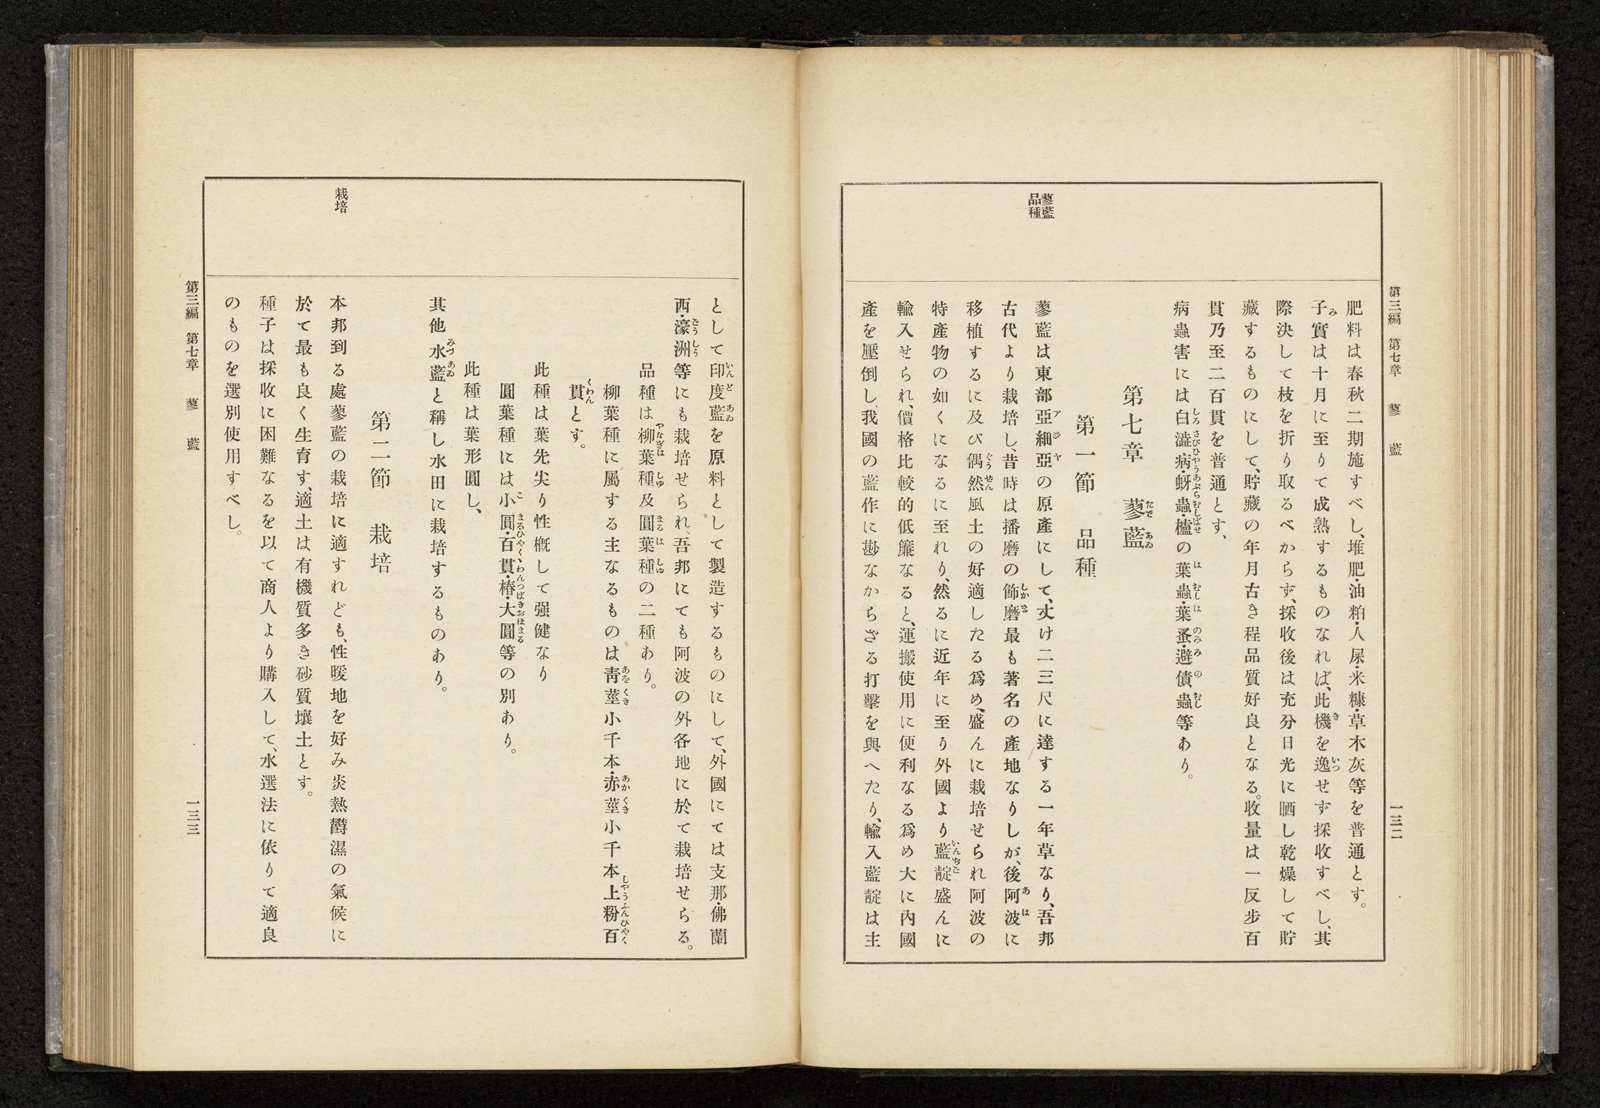 第三編 第七章 蓼藍
一三二
蓼藍
品種
肥料は春秋二期施すべし、堆肥・油粕・人屎・米糠・草木灰等を普通とす。
子實は十月に至りて成熟するものなれば、此機を逸せず採收すべし、其
際決して枝を折り取るべからず、採收後は充分日光に晒し乾燥して貯
藏するものにして、貯藏の年月古き程品質好良となる。收量は一反步百
貫乃至二百貫を普通とす、
病蟲害には白澁病・蚜蟲・櫨の葉蟲・葉蚤・避債蟲等あり。
第七章 蓼藍
第一節 品種
蓼藍は東部亞細亞の原產にして、丈け二三尺に達する一年草なり、吾邦
古代より栽培し、昔時は播磨の飾磨最も著名の產地なりしが、後阿波に
移植するに及び偶然風土の好適したる爲め、盛んに栽培せられ阿波の
特產物の如くになるに至れり、然るに近年に至り外國より藍靛盛んに
輸入せられ、價格比較的低簾なると、運搬使用に便利なる爲め大に內國
產を壓倒し我國の藍作に尠なからざる打擊を與へたり、輸入藍靛は主
として印度藍を原料として製造するものにして、外國にては支那・佛蘭
西・濠洲等にも栽培せられ、吾邦にても阿波の外各地に於て栽培せらる。
品種は柳葉種及圓葉種の二種あり。
柳葉種に屬する主なるものは靑莖小千本・赤莖小千本上粉百
貫とす。
此種は葉先尖り性槪して强健なり
圓葉種には小圓・百貫・椿・大圓等の別あり。
此種は葉形圓し、
其他水藍と稱し水田に栽培するものあり。
第二節 栽培
栽培
本邦到る處蓼藍の栽培に適すれども、性暖地を好み炎熱欝濕の氣候に
於て最も良く生育す、適土は有機質多き砂質壤土とす。
種子は採收に困難なるを以て商人より購入して、水選法に依りて適良
のものを選別使用すべし。
第三編 第七章 蓼藍
一三三